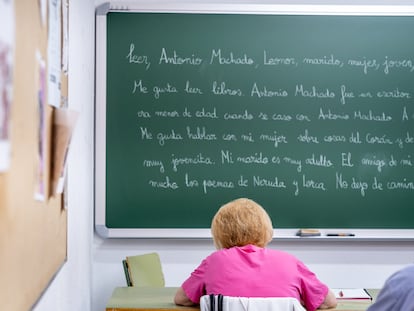 leer, Antonio Machado, Leonor, marido, mujer, joven,
Me gusta leer libros. Antonio Machado fue un escritor
era menor de edad cuando se casó con Antonio Machado. A
Me gusta hablar con mi mujer sobre cosas del Corán y de
muy jovencita. Mi marido es muy adulto. El amigo de mi
mucho los poemas de Neruda y Lorca. No dejo de